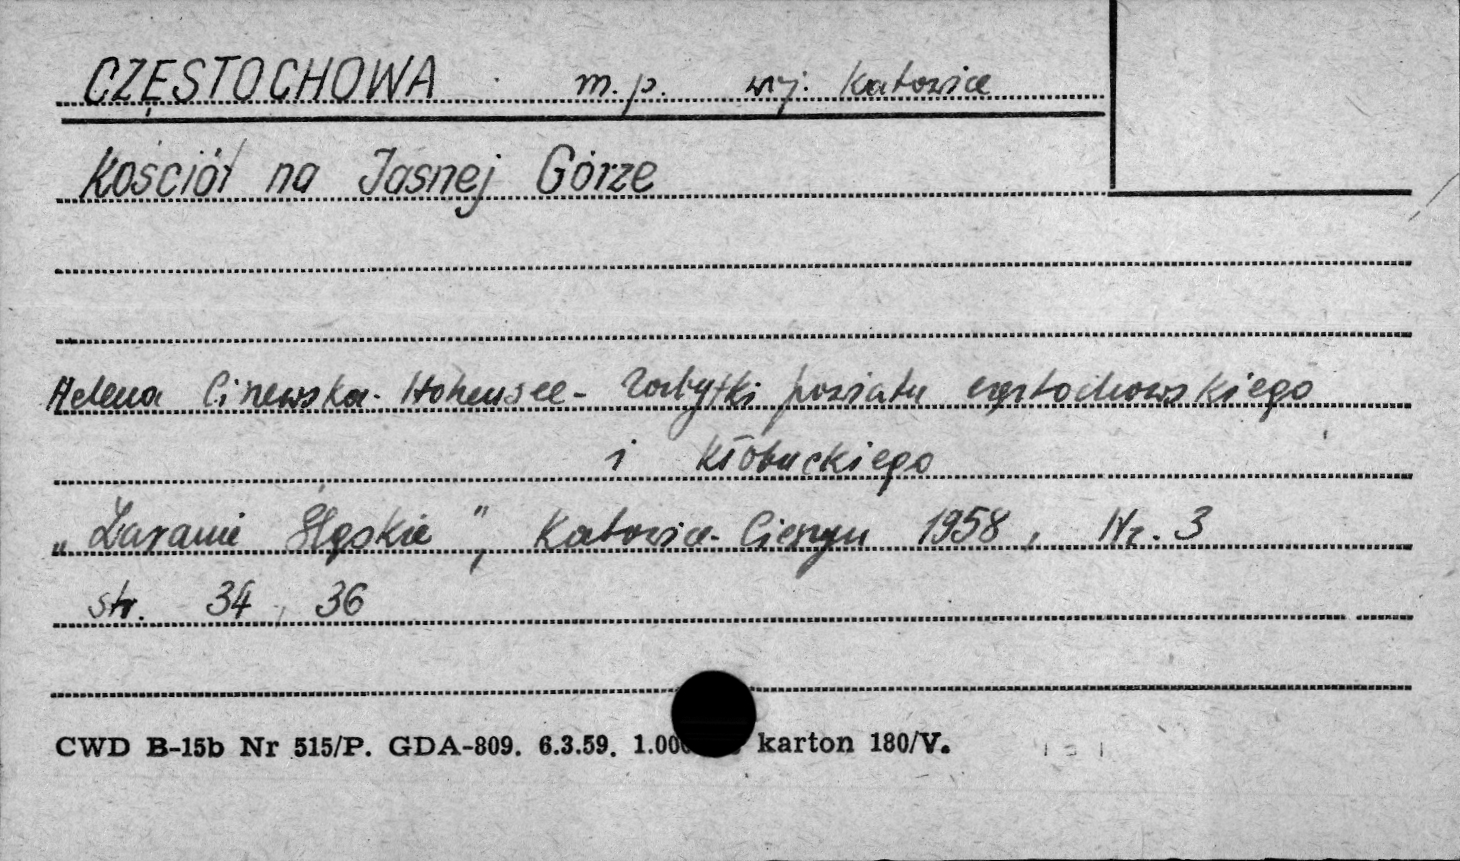 CZĘSTOCHOWA m.p. woj. Katowice
Kościół na Jasnej Górze
Helena Cinewska-Hohensee - Zabytki powiatu częstochowskiego
i kłobuckiego
„Zaranie Śląskie", Katowice-Cieszyn 1958, Nr. 3
str. 34, 36
CWD B-15b Nr 515/P. GDA-809. 6.3.59. karton 180/V.